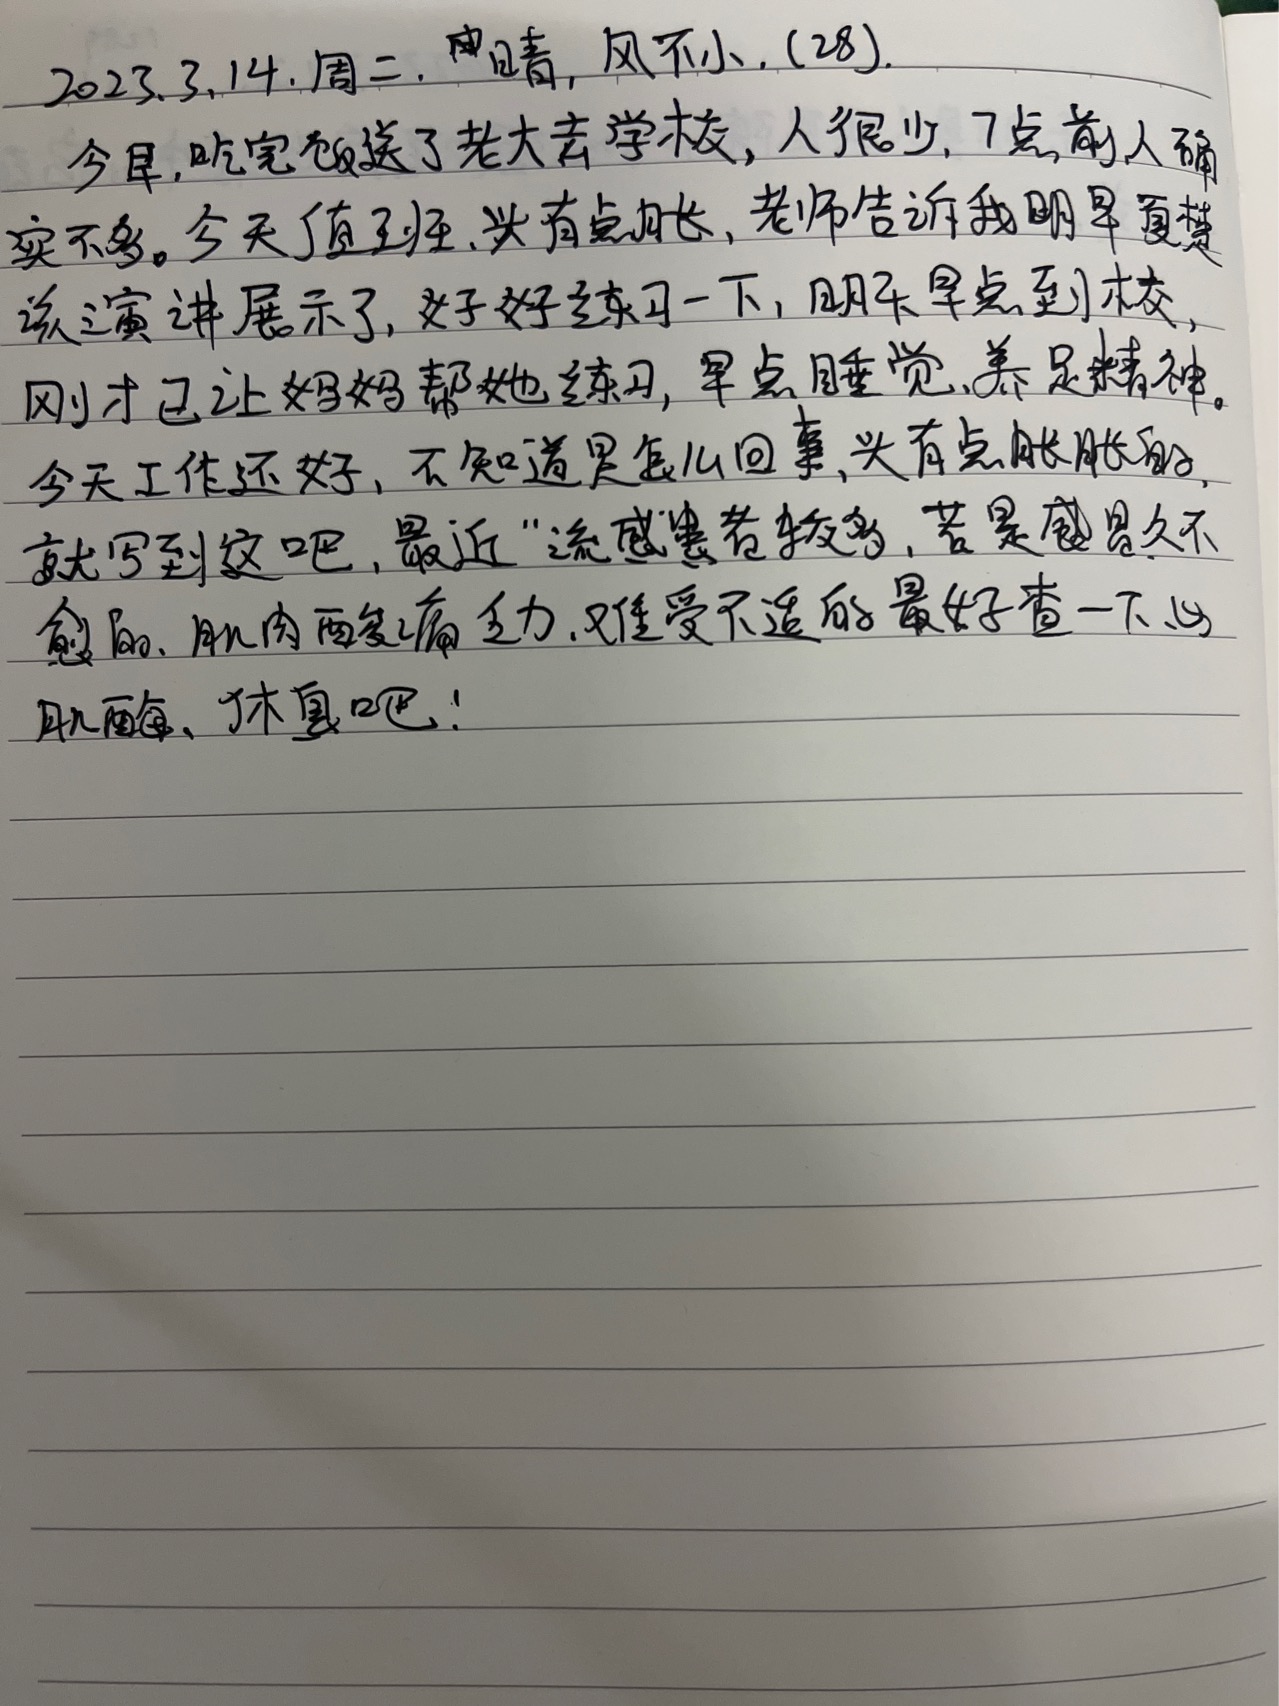 2023.3.14.周二.晴,风不小.(28).
今早,吃完饭送了老大去学校,人很少,7点前人确
实不多。今天值班,头有点胀,老师告诉我明早夏楚
该演讲展示了,好好练习一下,明天早点到校,
刚才已让妈妈帮她练习,早点睡觉、养足精神。
今天工作还好,不知道是怎么回事,头有点胀胀的,
就写到这吧,最近"流感"患者较多,若是感冒久不
愈的、肌肉酸痛乏力、难受不适的最好查一下心
肌酶、休息吧!